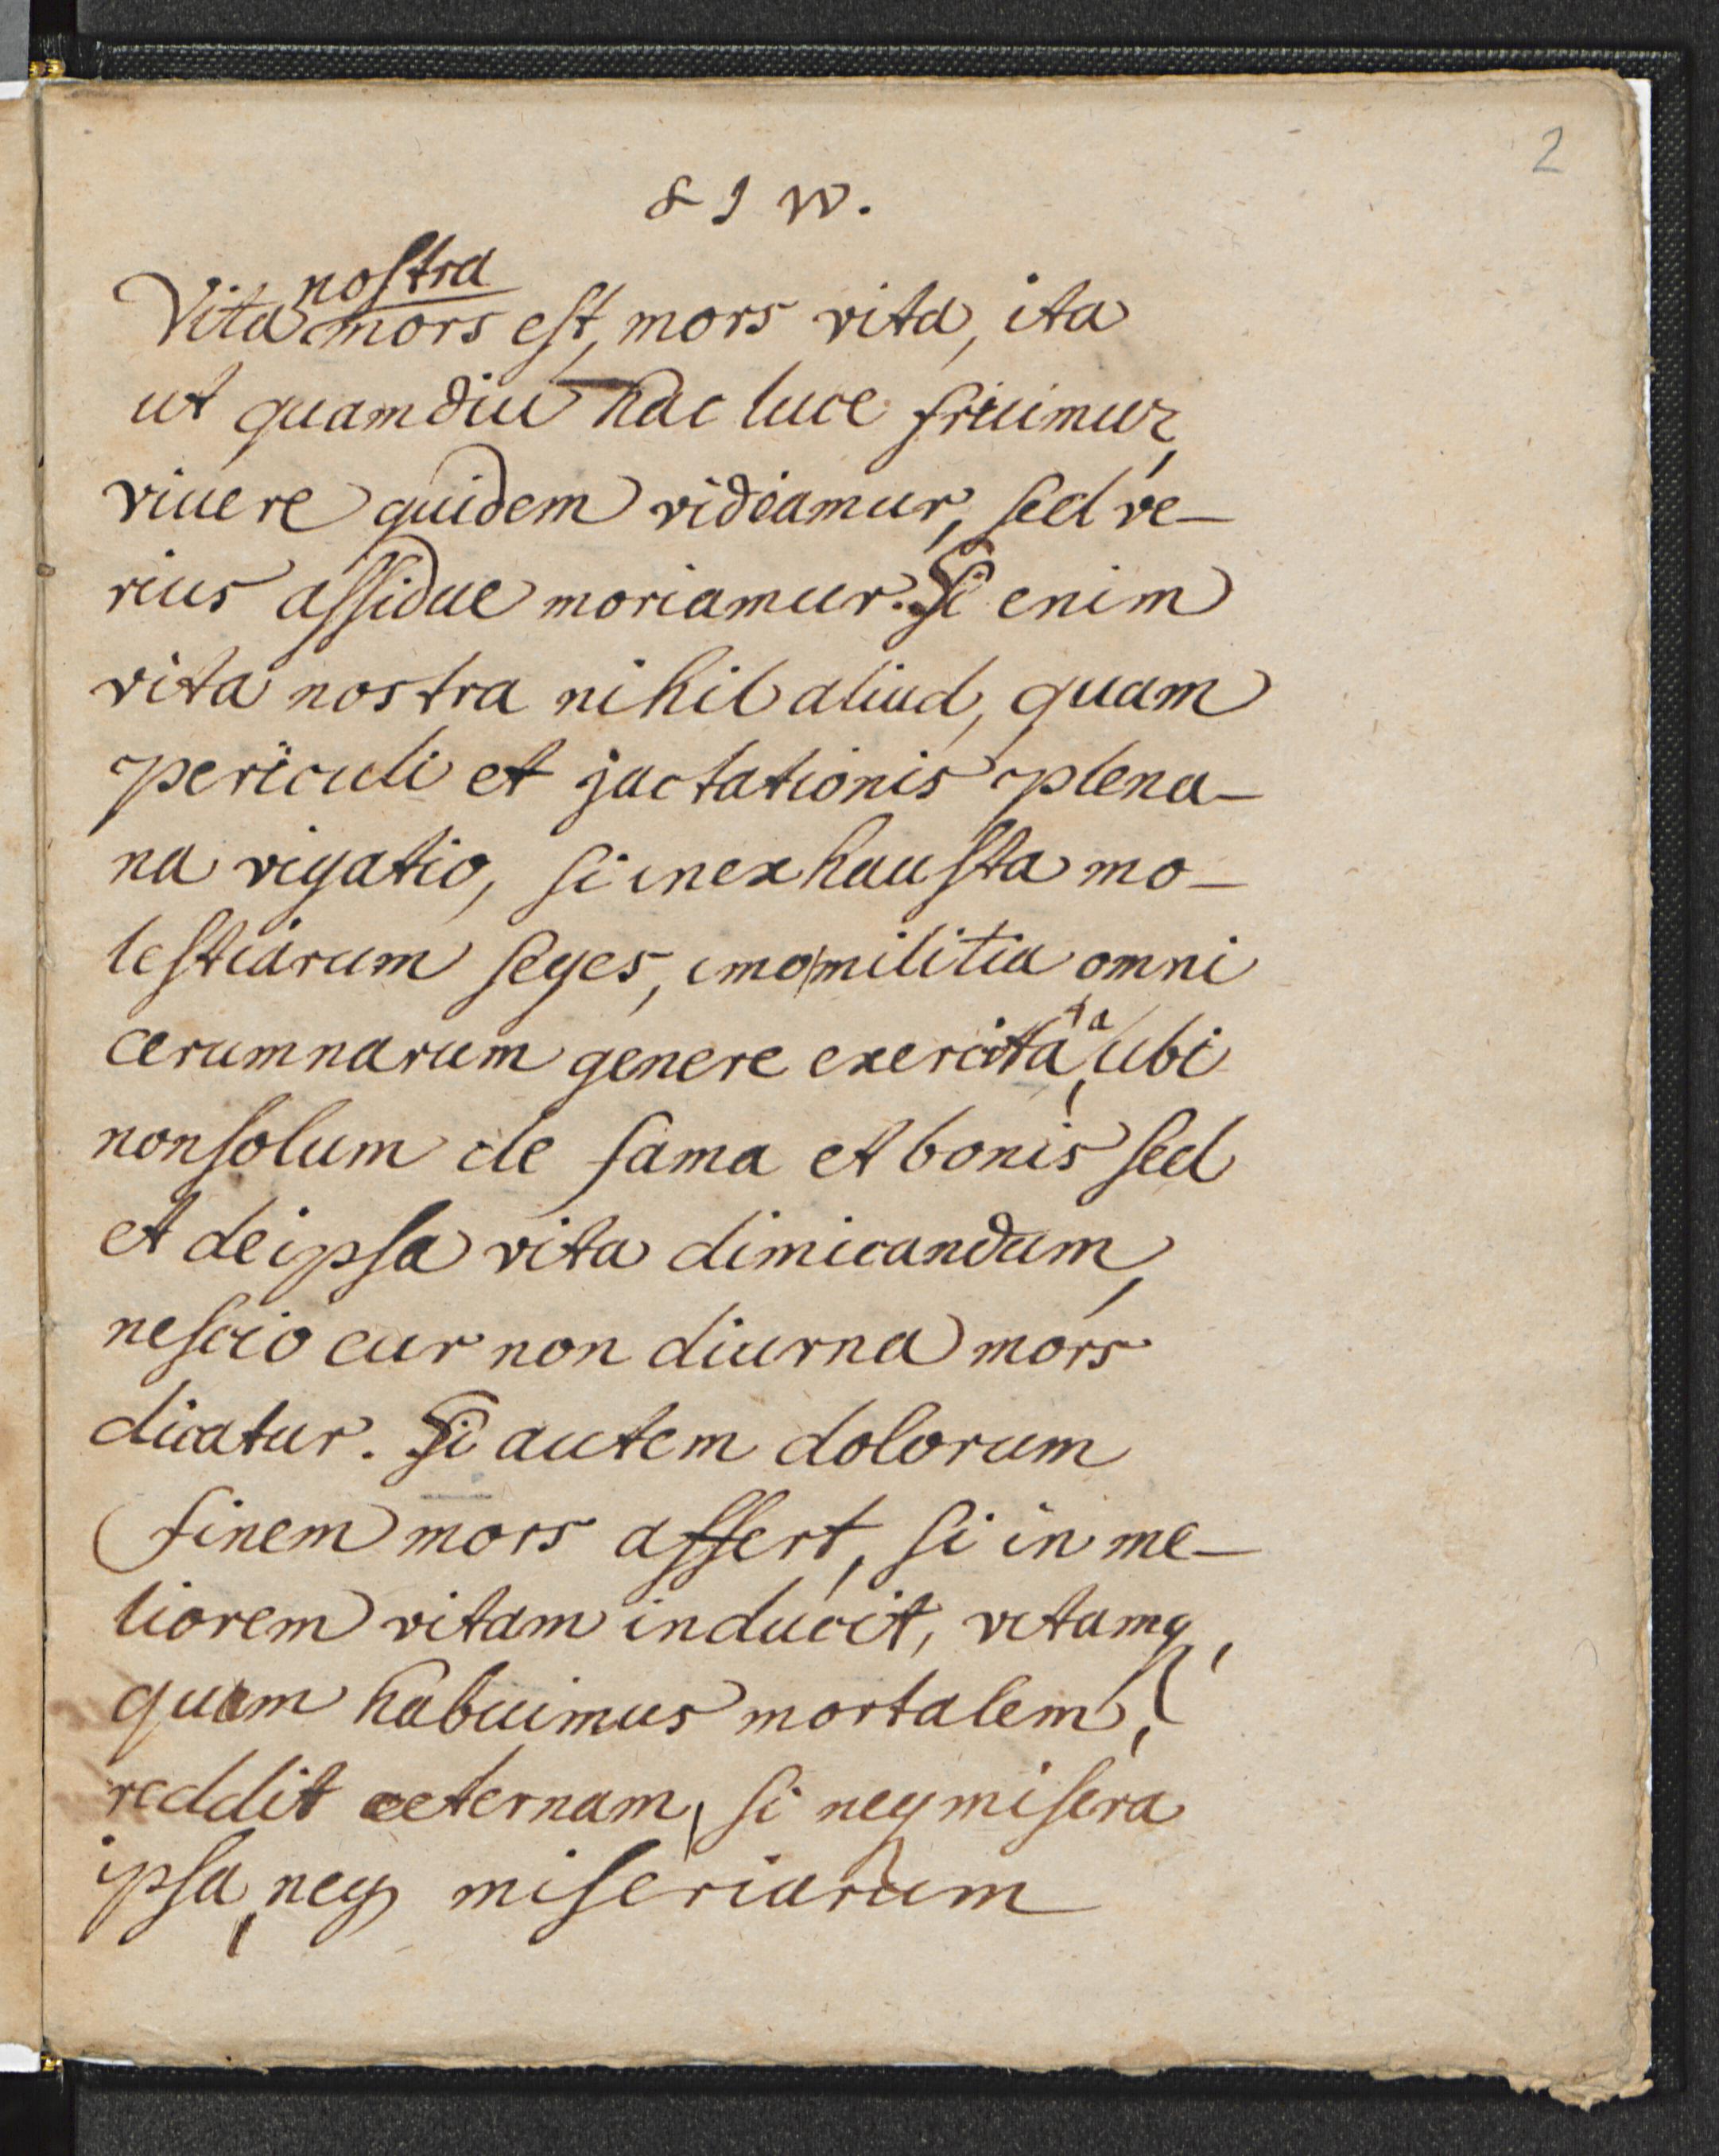 2
& J W.
nostra
Vita mors est, mors vita, ita
ut quamdiu hac luce fruimur,
viuere quidem videamur, sed ve-
rius assidue moriamur. Si enim
vita nostra nihil aliud, quam
periculi et jactationis plena
navigatio, si inexhausta mo-
lestiarum seges, imo militia omni
ærumnarum genere exercita, ta ubi
non solum de fama et bonis sed
et de ipsa vita dimicandum,
nescio cur non diurna mors
dicatur. Si autem dolorum
finem mors affert, si in me-
liorem vitam inducit, vitamq,
quam habuimus mortalem,
reddit æternam, si neq misera
ipsa, neq miseriarum